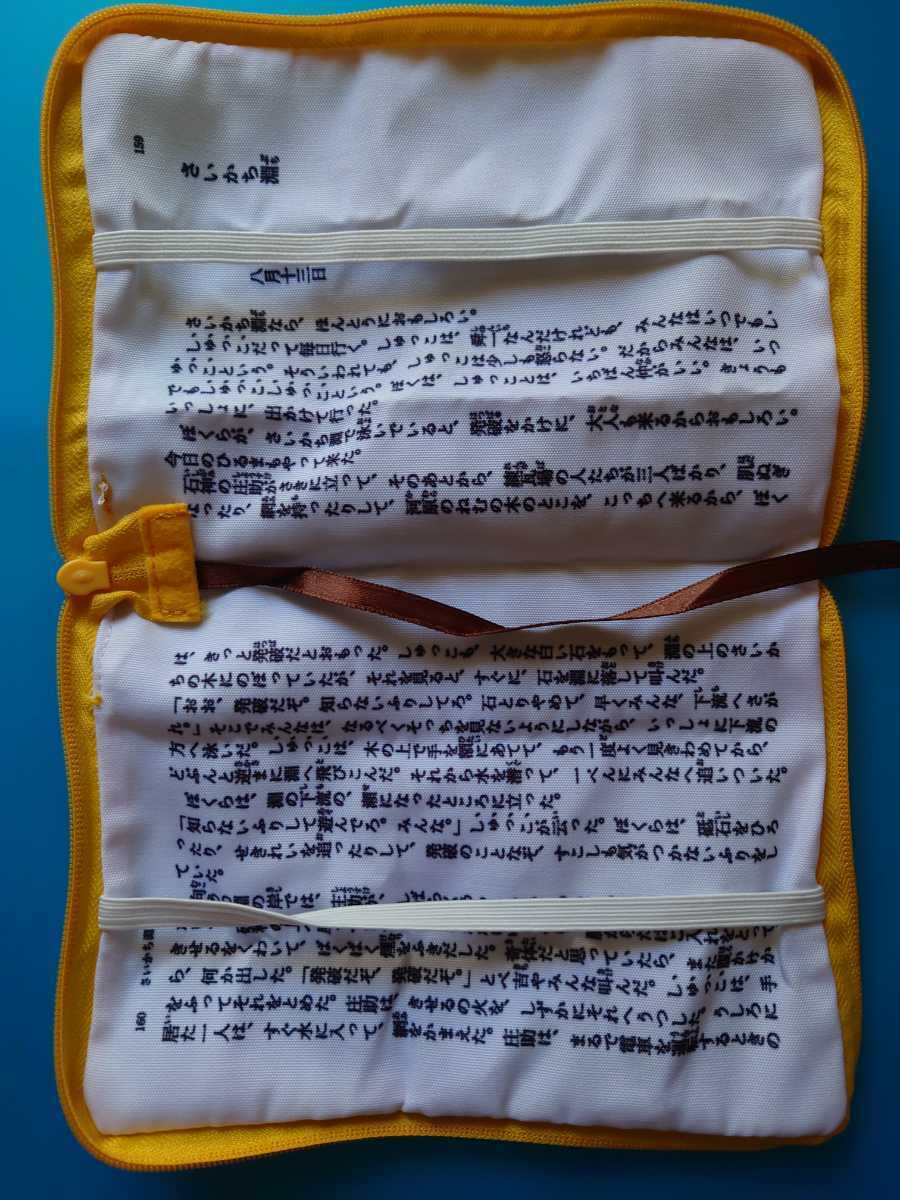 159
さいかち淵
八月十三日
さいかち淵なら、ほんとうにおもしろい。
しゅっこだって毎日行く。しゅっこは、舜一なんだけれども、みんなはいつでもし
ゅっこという。そういわれても、しゅっこは少しも怒らない。だからみんなは、いつ
でもしゅっこしゅっこという。ぼくは、しゅっことは、いちばん仲がいい。きょうも
いっしょに、出かけて行った。
ぼくらが、さいかち淵で泳いでいると、発破をかけに、大人も来るからおもしろい。
今日のひるまもやって来た。
石神の庄助がさきに立って、そのあとから、練瓦場の人たちが三人ばかり、肌ぬぎ
になったり、網を持ったりして、河原のねむの木のとこを、こっちへ来るから、ぼく
は、きっと発破だとおもった。しゅっこも、大きな白い石をもって、淵の上のさいか
ちの木にのぼっていたが、それを見ると、すぐに、石を淵に落して叫んだ。
「おお、発破だぞ。知らないふりしてろ。石とりやめて、早くみんな、下流へさが
れ。」そこでみんなは、なるべくそっちを見ないようにしながら、いっしょに下流の
方へ泳いだ。しゅっこは、木の上で手を額にあてて、もう一度よく見きわめてから、
どぶんと逆まに淵へ飛びこんだ。それから水を潜って、一ぺんにみんなへ追いついた。
ぼくらは、淵の下流の、瀬になったところに立った。
「知らないふりして遊んでろ。みんな。」しゅっこが云った。ぼくらは、砥石をひろ
ったり、せきれいを追ったりして、発破のことなぞ、すこしも気がつかないふりをし
ていた。
向うの淵の岸では、庄助が、しばらく
きせるをくわいて、ぱくぱく煙をふきだした。奇体だと思っていたら、また腹かけか
ら、何か出した。「発破だぞ、発破だぞ。」とぺ吉やみんな叫んだ。しゅっこは、手
をふってそれをとめた。庄助は、きせるの火を、しずかにそれへうつした。うしろに
居た一人は、すぐ水に入って、網をかまえた。庄助は、まるで電車を運転するときの
さいかち淵
160